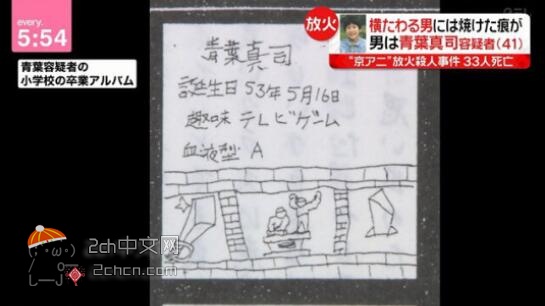 every.
5:54
放火
横たわる男には焼けた痕が
男は青葉真司容疑者(41)
"京アニ"放火殺人事件 33人死亡
青葉容疑者の
小学校の卒業アルバム
青葉真司
誕生日 53年5月16日
趣味 テレビゲーム
血液型 A
2ch中文网
2chcn.com